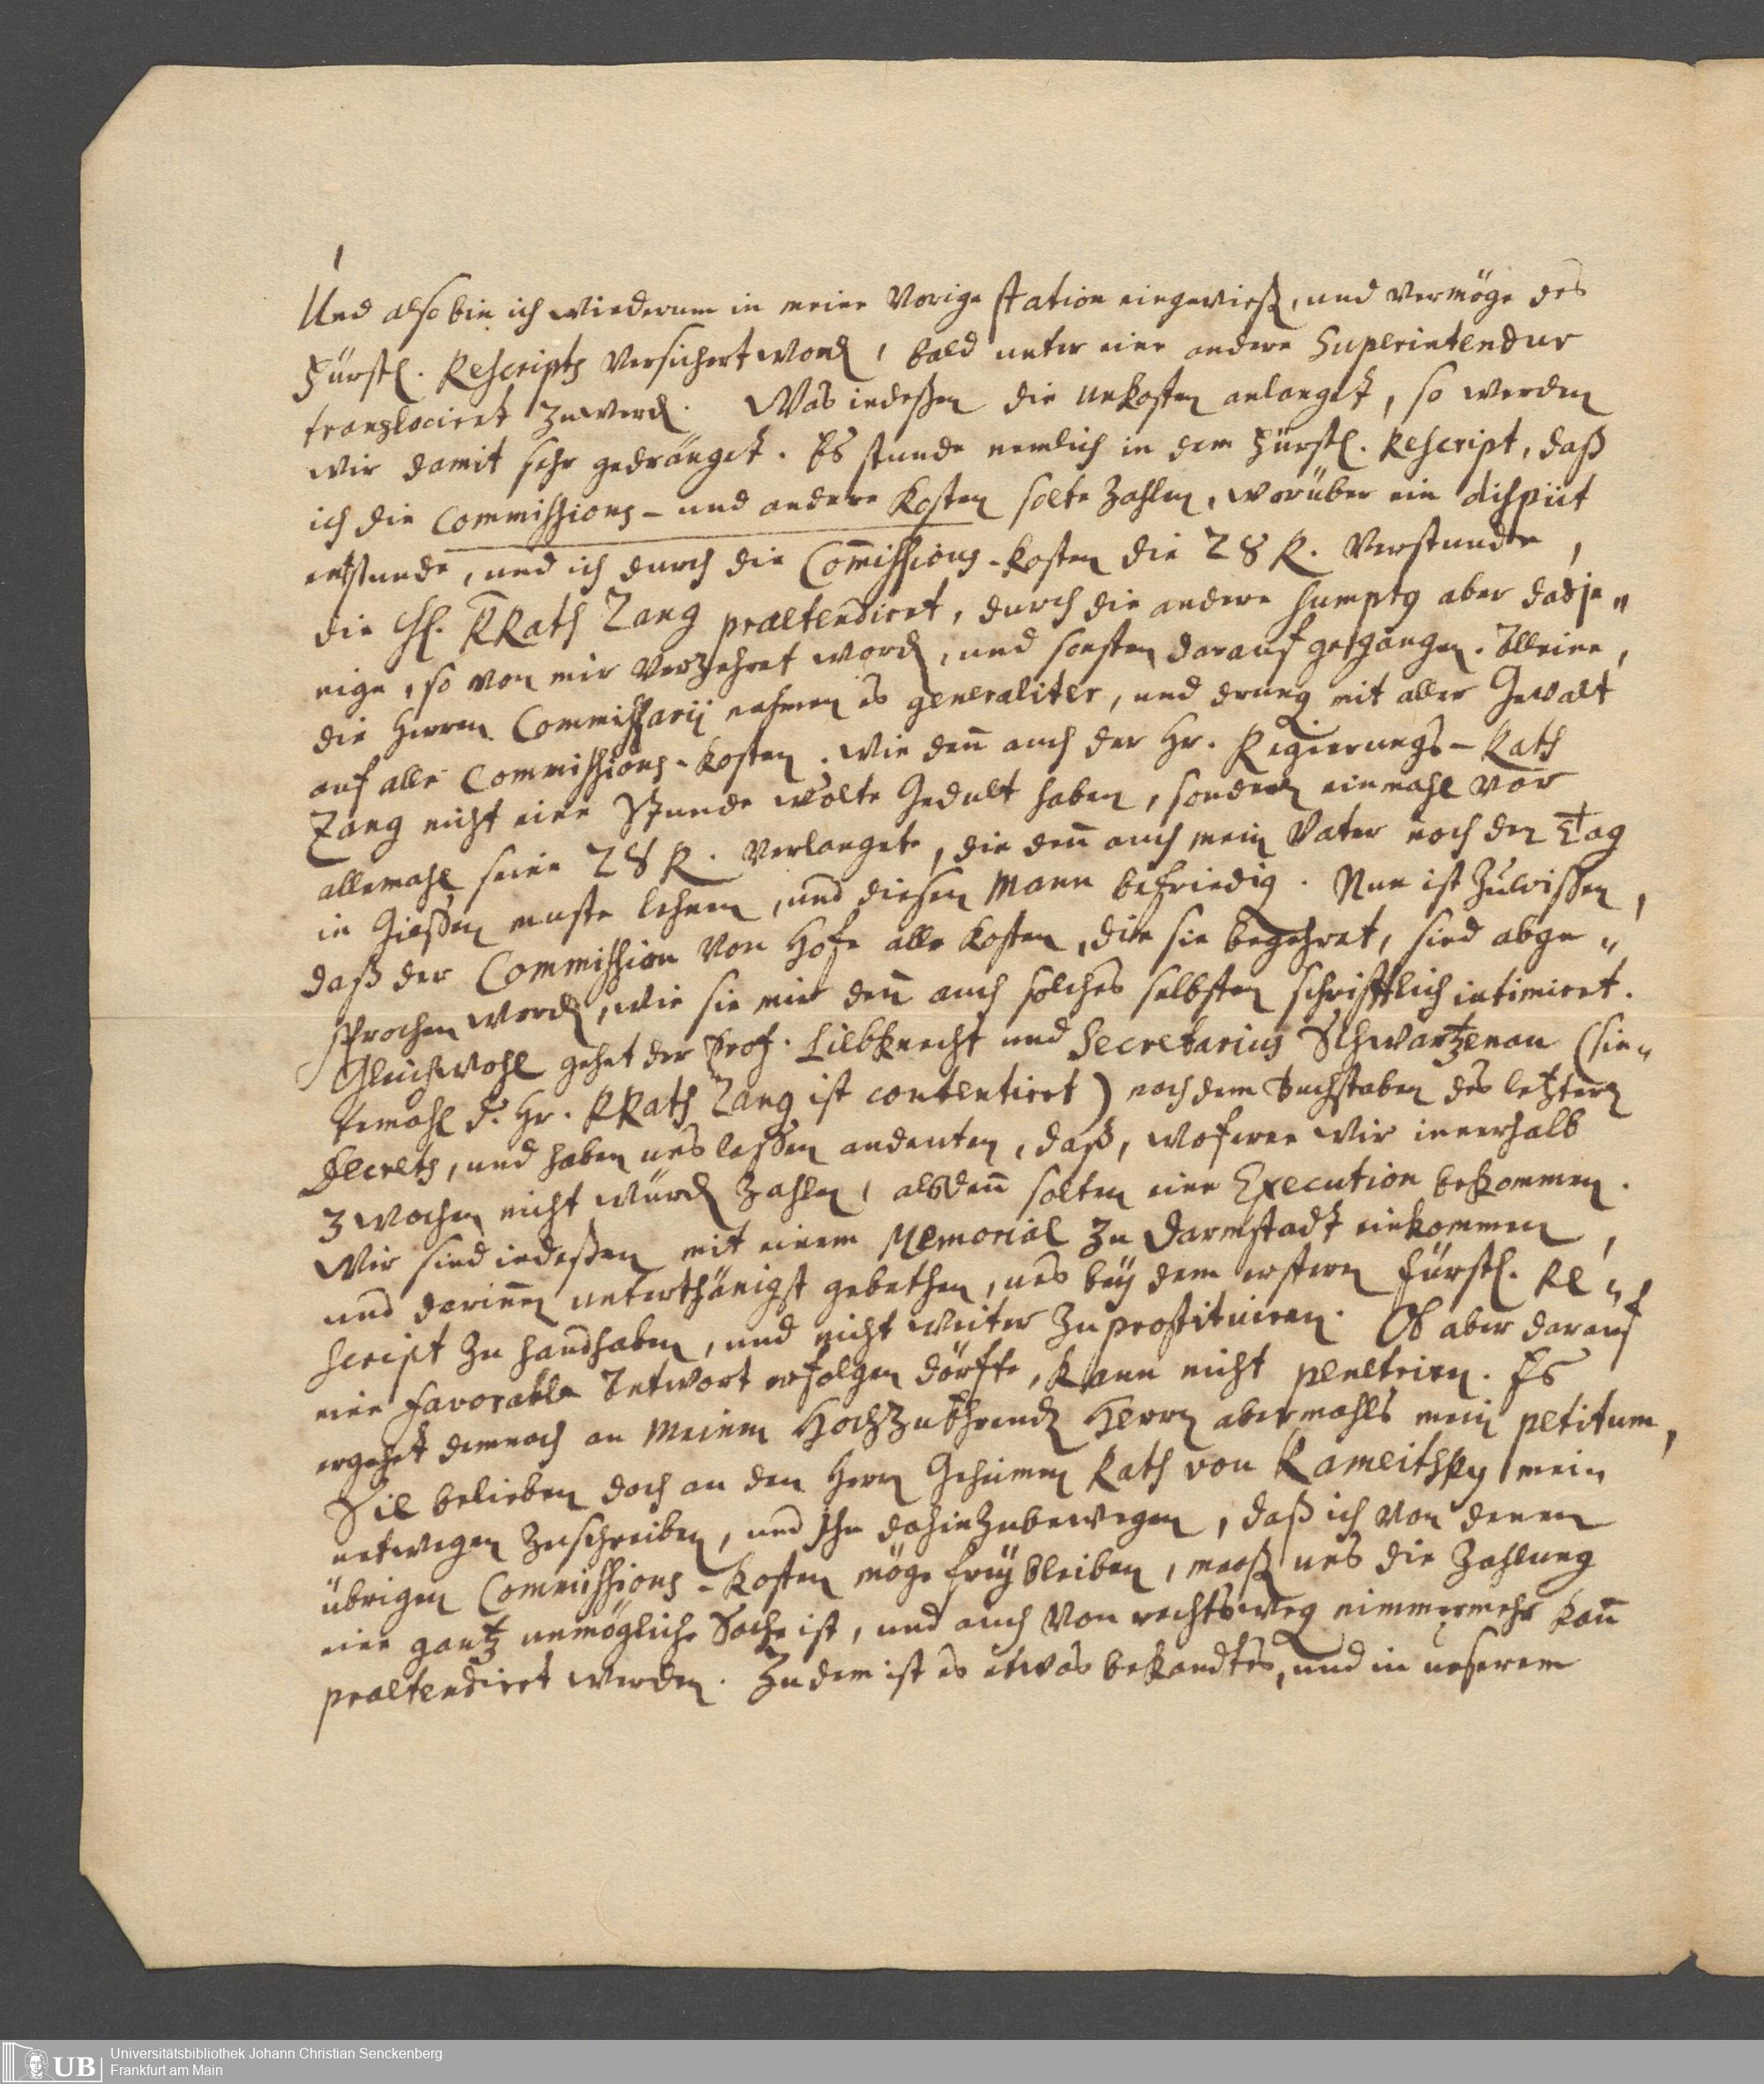 Und also bin ich wiederum in meine Vorige station eingewieß, und vermöge des
Fürstl. Rescripts versichert word, bald unter eine andere Superintendur
translociret zuwerd. Was indeßen die unkosten anlanget, so werden
wir damit sehr gedränget. Es stunde nemlich in dem Fürstl. Rescript, daß
ich die Commissions- und andere Kosten solte zahlen, worüber ein dispüt
entstunde, und ich durch die Com̄issions-Kosten die 28 R. Verstunde,
die H. RRath Zang praetendiret, durch die andere sumptg aber dasje„
nige, so von mir verzehret word, und sonsten darauf gegangen. Alleine,
die Herren Commissarij nahmen es generaliter, und drung mit aller Gewalt
auf alle Commissions-Kosten. Wie den̄ auch der Hr. Regierungs-Rath
Zang nicht eine Stunde wolte Gedult haben, sondern einmahl vor
allemahl seine 28 R. verlangte, die den̄ auch mein Vater noch den Tag
in Gießen muste lehnen, und diesen Mann befriedig. Nun ist zuwißen,
daß der Commission von Hofe alle Kosten, die sie begehret, sind abge„
sprochen word, wie sie mir den̄ auch solches selbsten schrifftlich intimiret.
Gleichwohl gehet der Prof. Liebknecht und Secretarius Schwartzenau (sin„
temahl d. Hr. RRath Zang ist contentiret) nach dem Buchstaben des letztern
Decrets, und haben uns laßen andeuten, daß, wofern wir innerhalb
3 Wochen nicht würd zahlen, alsden̄ solten eine Execution bekommen.
Wir sind indeßen mit einem Memorial zu Darmstadt einkommen,
und darin̄en unterthänigst gebethen, uns bey dem erstern Fürstl. Re„
script zu handhaben, und nicht weiter zu prostituiren. Ob aber darauf
eine favorable Antwort erfolgen dörfte, kann nicht penetrirn. Es
ergehet demnach an Meinen Hochzuehrend Herrn abermahls mein petitum,
Sie belieben doch an den Herrn Geheimen Rath von Kameitsky mein
entwegen zuschreiben, und Ihn dahin zubewegen, daß ich von denen
übrigen Commissions-Kosten möge frey bleiben, maaß uns die Zahlung
eine gantz unmögliche Sache ist, und auch von rechtsweg nimmermehr kan̄
praetendiret werden. Zudem ist es etwas bekandtes, und in unserem
Universitätsbibliothek Johann Christian Senckenberg
Frankfurt am Main
UB